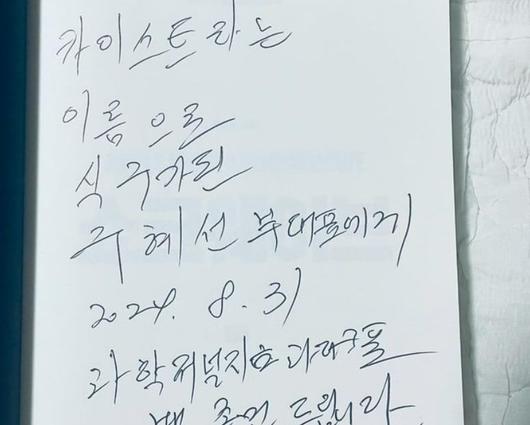 카이스트라는
이름으로
식구가된
구혜선 부대표에게
2024. 8. 31
과학저널리즘
드립니다